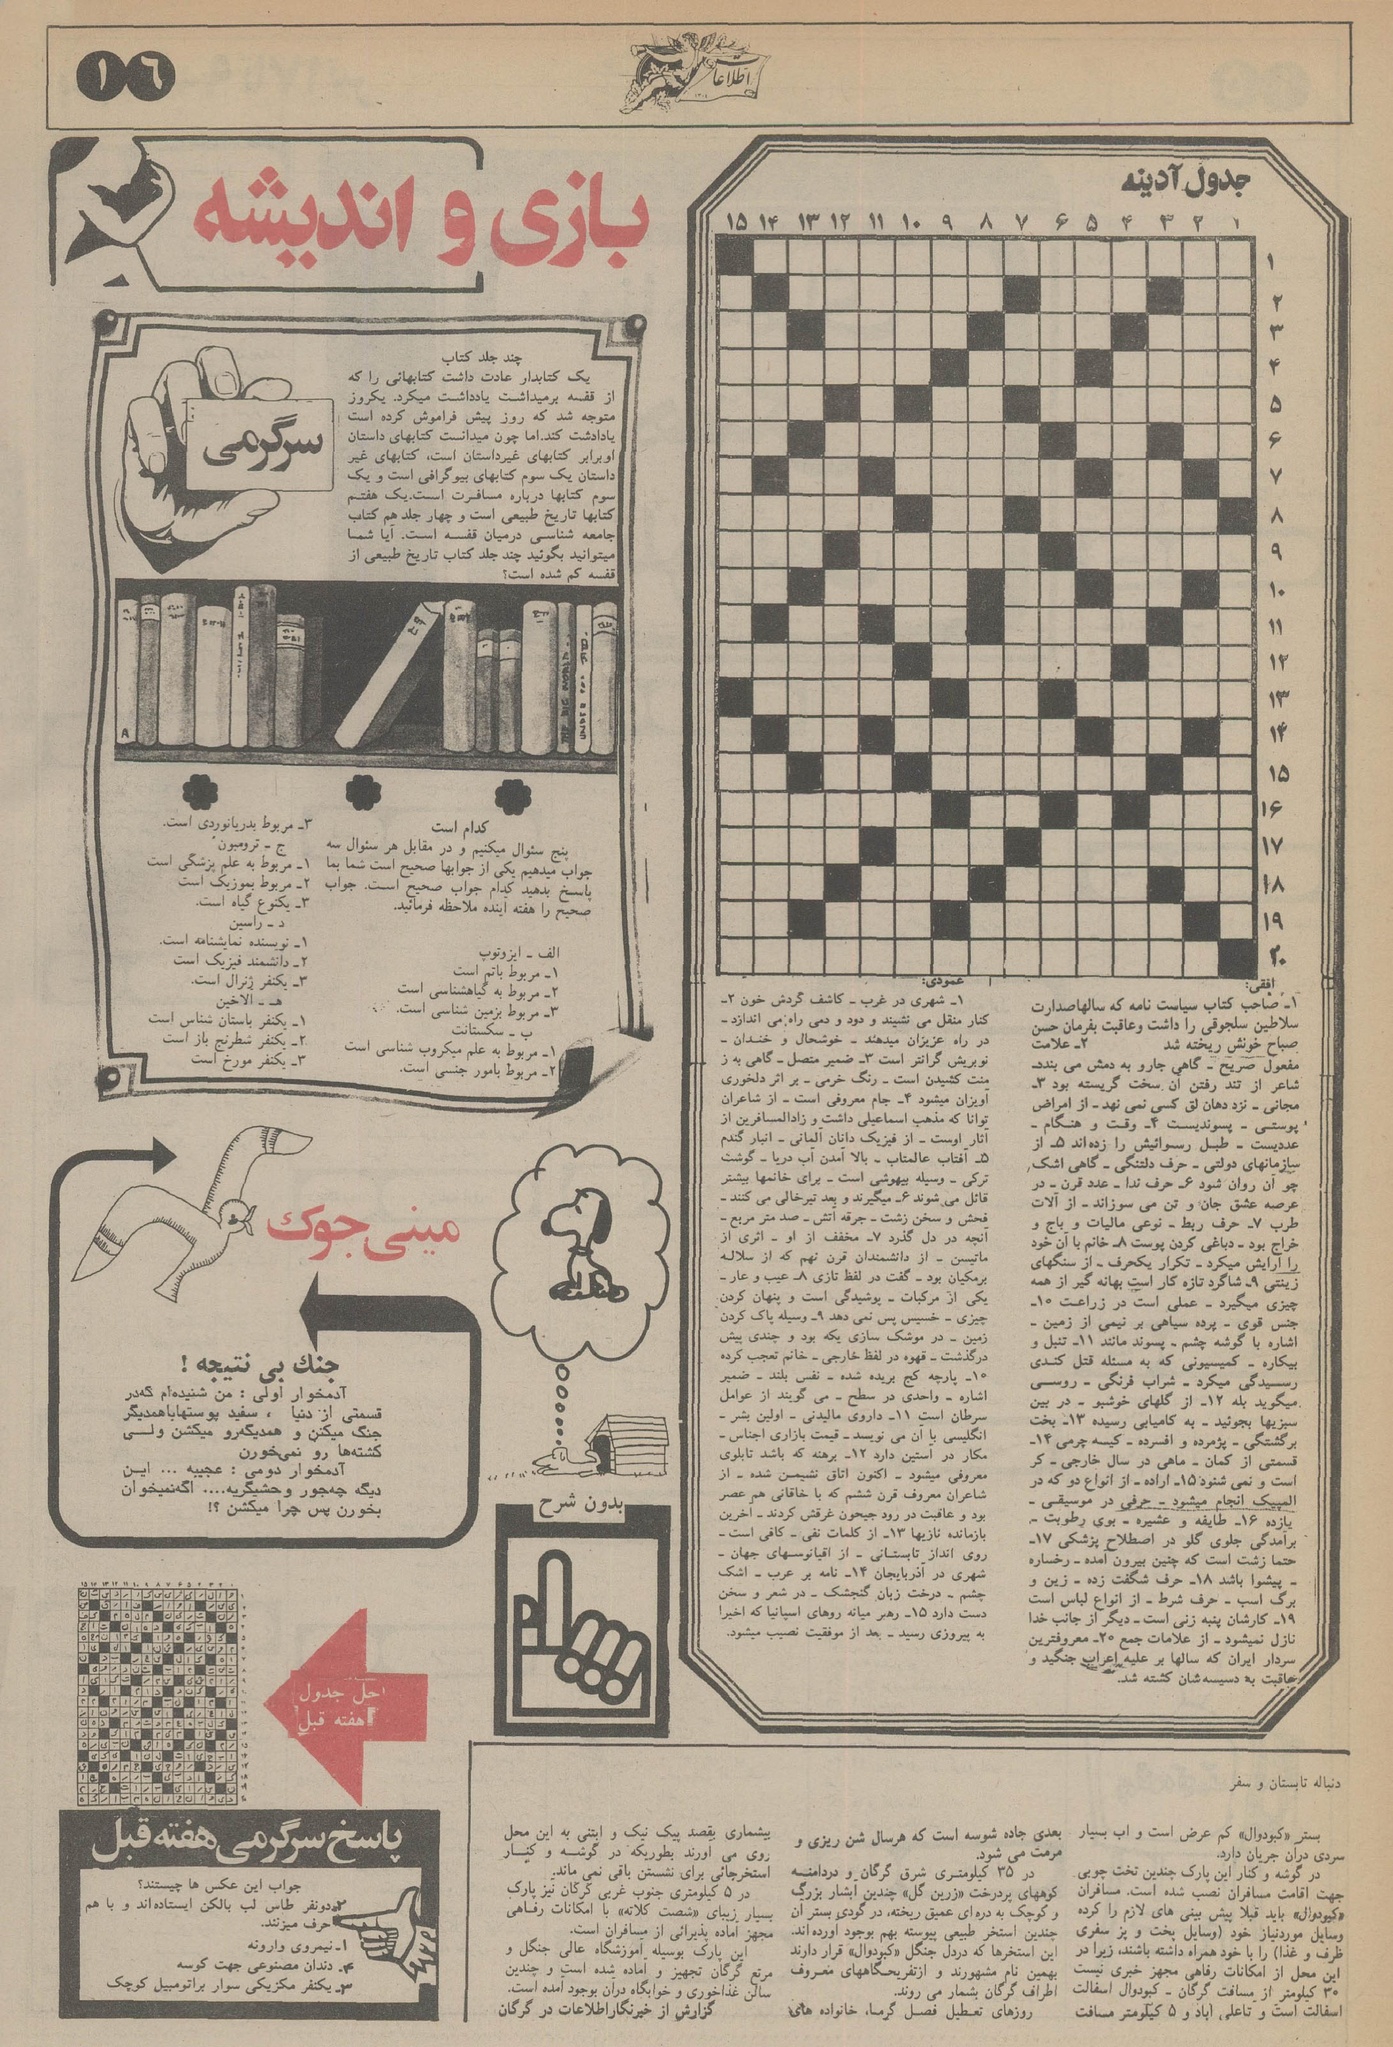 ۱۶
اطلاعات
بازی و اندیشه
جدول آدینه
۱ ۲ ۳ ۴ ۵ ۶ ۷ ۸ ۹ ۱۰ ۱۱ ۱۲ ۱۳ ۱۴ ۱۵
۱
۲
۳
۴
۵
۶
۷
۸
۹
۱۰
۱۱
۱۲
۱۳
۱۴
۱۵
۱۶
۱۷
۱۸
۱۹
۲۰
افقی:
۱ـ صاحب کتاب سیاست نامه که سالهاصدارت
سلاطین سلجوقی را داشت وعاقبت بفرمان حسن
صباح خونش ریخته شد ۲ـ علامت
مفعول صریح ـ گاهی جارو به دمش می بندد ـ
شاعر از تند رفتن آن سخت گریسته بود ۳ـ
مجانی ـ نزد دهان لق کسی نمی نهد ـ از امراض
پوستی ـ پسوندیست ۴ـ وقت و هنگام ـ
عددیست ـ طبل رسوائیش را زده‌اند ۵ـ از
سازمانهای دولتی ـ حرف دلتنگی ـ گاهی اشک
چو آن روان شود ۶ـ حرف ندا ـ عدد قرن ـ در
عرصه عشق جان و تن می سوزاند ـ از آلات
طرب ۷ـ حرف ربط ـ نوعی مالیات و باج و
خراج بود ـ دباغی کردن پوست ۸ـ خانم با آن خود
را آرایش میکرد ـ تکرار یکحرف ـ از سنگهای
زینتی ۹ـ شاگرد تازه کار است بهانه گیر از همه
چیزی میگیرد ـ عملی است در زراعت ۱۰ـ
جنس قوی ـ پرده سیاهی بر نیمی از زمین ـ
اشاره با گوشه چشم ـ پسوند مانند ۱۱ـ تنبل و
بیکاره ـ کمیسیونی که به مسئله قتل کندی
رسیدگی میکرد ـ شراب فرنگی ـ روسی
میگوید بله ۱۲ـ از گلهای خوشبو ـ در بین
سبزیها بجوئید ـ به کامیابی رسیده ۱۳ـ بخت
برگشتگی ـ پژمرده و افسرده ـ کیسه چرمی ۱۴ـ
قسمتی از کمان ـ ماهی در سال خارجی ـ کر
است و نمی شنود ۱۵ـ اراده ـ از انواع دو که در
المپیک انجام میشود ـ حرفی در موسیقی ـ
یازده ۱۶ـ طایفه و عشیره ـ بوی رطوبت ـ
برآمدگی جلوی گلو در اصطلاح پزشکی ۱۷ـ
حتما زشت است که چنین بیرون آمده ـ رخساره
ـ پیشوا باشد ۱۸ـ حرف شگفت زده ـ زین و
برگ اسب ـ حرف شرط ـ از انواع لباس است
۱۹ـ کارشان پنبه زنی است ـ دیگر از جانب خدا
نازل نمیشود ـ از علامات جمع ۲۰ـ معروفترین
سردار ایران که سالها بر علیه اعراب جنگید و
عاقبت به دسیسه‌شان کشته شد.
عمودی:
۱ـ شهری در غرب ـ کاشف گردش خون ۲ـ
کنار منقل می نشیند و دود و دمی راه می اندازد ـ
در راه عزیزان میدهند ـ خوشحال و خندان ـ
نوبریش گرانتر است ۳ـ ضمیر متصل ـ گاهی به ز
منت کشیدن است ـ رنگ خرمی ـ بر اثر دلخوری
آویزان میشود ۴ـ جام معروفی است ـ از شاعران
توانا که مذهب اسماعیلی داشت و زادالمسافرین از
آثار اوست ـ از فیزیک دانان آلمانی ـ انبار گندم
۵ـ آفتاب عالمتاب ـ بالا آمدن آب دریا ـ گوشت
ترکی ـ وسیله بیهوشی است ـ برای خانمها بیشتر
قائل می شوند ۶ـ میگیرند و بعد تیرخالی می کنند ـ
فحش و سخن زشت ـ جرقه آتش ـ صد متر مربع ـ
آنچه در دل گذرد ۷ـ مخفف از او ـ اثری از
ماتیسن ـ از دانشمندان قرن نهم که از سلاله
برمکیان بود ـ گفت در لفظ تازی ۸ـ عیب و عار ـ
یکی از مرکبات ـ پوشیدگی است و پنهان کردن
چیزی ـ خسیس پس نمی دهد ۹ـ وسیله پاک کردن
زمین ـ در موشک سازی یکه بود و چندی پیش
درگذشت ـ قهوه در لفظ خارجی ـ خانم تعجب کرده
۱۰ـ پارچه کج بریده شده ـ نفس بلند ـ ضمیر
اشاره ـ واحدی در سطح ـ می گویند از عوامل
سرطان است ۱۱ـ داروی مالیدنی ـ اولین بشر ـ
انگلیسی با آن می نویسد ـ قیمت بازاری اجناس ـ
مکار در آستین دارد ۱۲ـ برهنه که باشد تابلوی
معروفی میشود ـ اکنون اتاق نشیمن شده ـ از
شاعران معروف قرن ششم که با خاقانی هم عصر
بود و عاقبت در رود جیحون غرقش کردند ـ آخرین
بازمانده نازیها ۱۳ـ از کلمات نفی ـ کافی است ـ
روی انداز تابستانی ـ از اقیانوسهای جهان ـ
شهری در آذربایجان ۱۴ـ نامه بر عرب ـ اشک
چشم ـ درخت زبان گنجشک ـ در شعر و سخن
دست دارد ۱۵ـ رهبر میانه روهای اسپانیا که اخیرا
به پیروزی رسید ـ بعد از موفقیت نصیب میشود.
سرگرمی
چند جلد کتاب
یک کتابدار عادت داشت کتابهائی را که
از قفسه برمیداشت یادداشت میکرد. یکروز
متوجه شد که روز پیش فراموش کرده است
یاداشت کند.اما چون میدانست کتابهای داستان
اوبرابر کتابهای غیرداستان است، کتابهای غیر
داستان یک سوم کتابهای بیوگرافی است و یک
سوم کتابها درباره مسافرت است.یک هفتم
کتابها تاریخ طبیعی است و چهار جلد هم کتاب
جامعه شناسی درمیان قفسه است. آیا شما
میتوانید بگوئید چند جلد کتاب تاریخ طبیعی از
قفسه کم شده است؟
کدام است
پنج سئوال میکنیم و در مقابل هر سئوال سه
جواب میدهیم یکی از جوابها صحیح است شما بما
پاسخ بدهید کدام جواب صحیح است. جواب
صحیح را هفته آینده ملاحظه فرمائید.
الف ـ ایزوتوپ
۱ـ مربوط باتم است
۲ـ مربوط به گیاهشناسی است
۳ـ مربوط بزمین شناسی است.
ب ـ سکستانت
۱ـ مربوط به علم میکروب شناسی است
۲ـ مربوط بامور جنسی است.
۳ـ مربوط بدریانوردی است.
ج ـ ترومبون
۱ـ مربوط به علم پزشگی است
۲ـ مربوط بموزیک است
۳ـ یکنوع گیاه است.
د ـ راسین
۱ـ نویسنده نمایشنامه است.
۲ـ دانشمند فیزیک است
۳ـ یکنفر ژنرال است.
هـ ـ الاخین
۱ـ یکنفر باستان شناس است
۲ـ یکنفر شطرنج باز است
۳ـ یکنفر مورخ است
مینی جوک
جنگ بی نتیجه !
آدمخوار اولی : من شنیده‌ام که‌در
قسمتی از دنیا ، سفید پوستهاباهمدیگر
جنگ میکنن و همدیگه‌رو میکشن ولی
کشته‌ها رو نمی‌خورن
آدمخوار دومی : عجیبه ... این
دیگه چه‌جور وحشیگریه.... اگه‌نمیخوان
بخورن پس چرا میکشن ؟!
بدون شرح
حل جدول
هفته قبل
پاسخ سرگرمی هفته قبل
جواب این عکس ها چیستند؟
۲ـ دونفر طاس لب بالکن ایستاده‌اند و با هم
حرف میزنند.
۱ـ نیمروی وارونه
۴ـ دندان مصنوعی جهت کوسه
۳ـ یکنفر مکزیکی سوار براتومبیل کوچک
دنباله تابستان و سفر
بستر «کبودوال» کم عرض است و آب بسیار
سردی درآن جریان دارد.
در گوشه و کنار این پارک چندین تخت چوبی
جهت اقامت مسافران نصب شده است. مسافران
«کبودوال» باید قبلا پیش بینی های لازم را کرده
وسایل موردنیاز خود (وسایل پخت و پز سفری
ظرف و غذا) را با خود همراه داشته باشند، زیرا در
این محل از امکانات رفاهی مجهز خبری نیست
۳۰ کیلومتر از مسافت گرگان ـ کبودوال آسفالت
اسفالت است و تاعلی آباد و ۵ کیلومتر مسافت
بعدی جاده شوسه است که هرسال شن ریزی و
مرمت می شود.
در ۳۵ کیلومتری شرق گرگان و دردامنه
کوههای پردرخت «زرین گل» چندین آبشار بزرگ
و کوچک به دره ای عمیق ریخته، در گودی بستر آن
چندین استخر طبیعی پیوسته بهم بوجود آورده‌اند.
این استخرها که دردل جنگل «کبودوال» قرار دارند
بهمین نام مشهورند و ازتفریحگاههای معروف
اطراف گرگان بشمار می روند.
روزهای تعطیل فصل گرما، خانواده های
بیشماری بقصد پیک نیک و آبتنی به این محل
روی می آورند بطوریکه در گوشه و کنار
استخرجائی برای نشستن باقی نمی ماند.
در ۵ کیلومتری جنوب غربی گرگان نیز پارک
بسیار زیبای «شصت کلاته» با امکانات رفاهی
مجهز آماده پذیرائی از مسافران است.
این پارک بوسیله آموزشگاه عالی جنگل و
مرتع گرگان تجهیز و آماده شده است و چندین
سالن غذاخوری و خوابگاه درآن بوجود آمده است.
گزارش از خبرنگاراطلاعات در گرگان